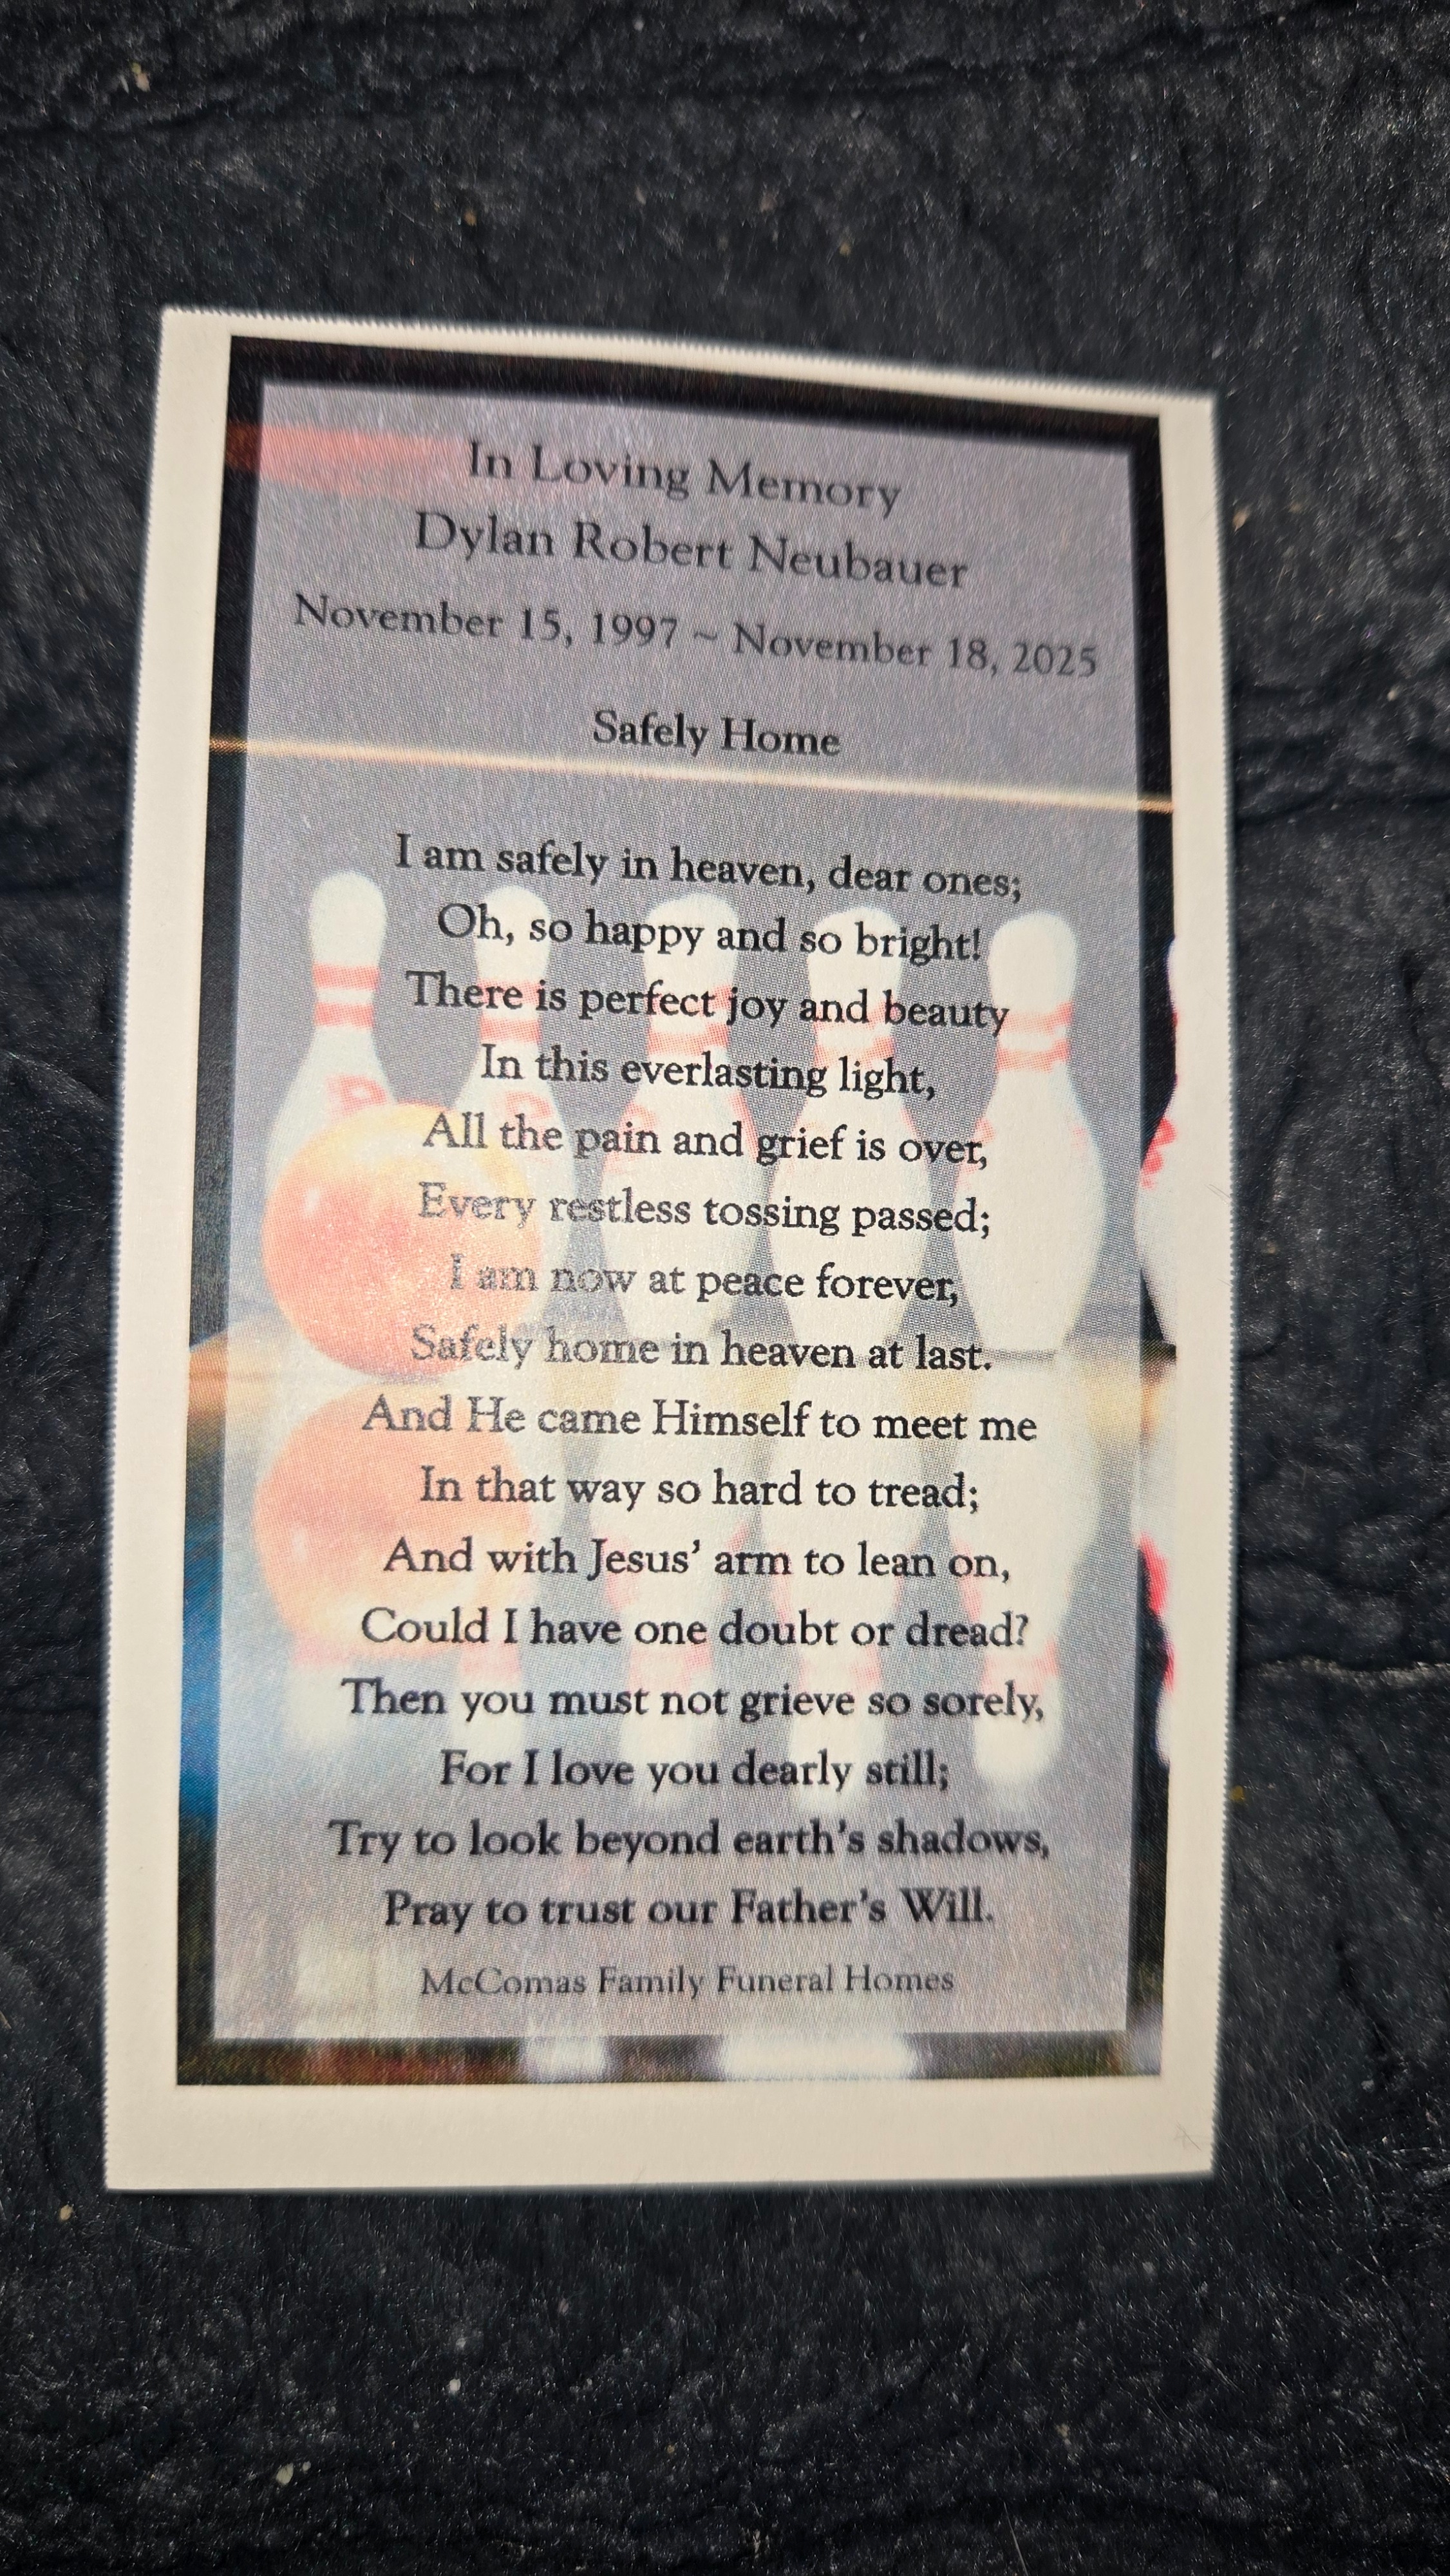 In Loving Memory
Dylan Robert Neubauer
November 15, 1997 ~ November 18, 2025
Safely Home
I am safely in heaven, dear ones;
Oh, so happy and so bright!
There is perfect joy and beauty
In this everlasting light,
All the pain and grief is over,
Every restless tossing passed;
I am now at peace forever,
Safely home in heaven at last.
And He came Himself to meet me
In that way so hard to tread;
And with Jesus’ arm to lean on,
Could I have one doubt or dread?
Then you must not grieve so sorely,
For I love you dearly still;
Try to look beyond earth’s shadows,
Pray to trust our Father’s Will.
McComas Family Funeral Homes